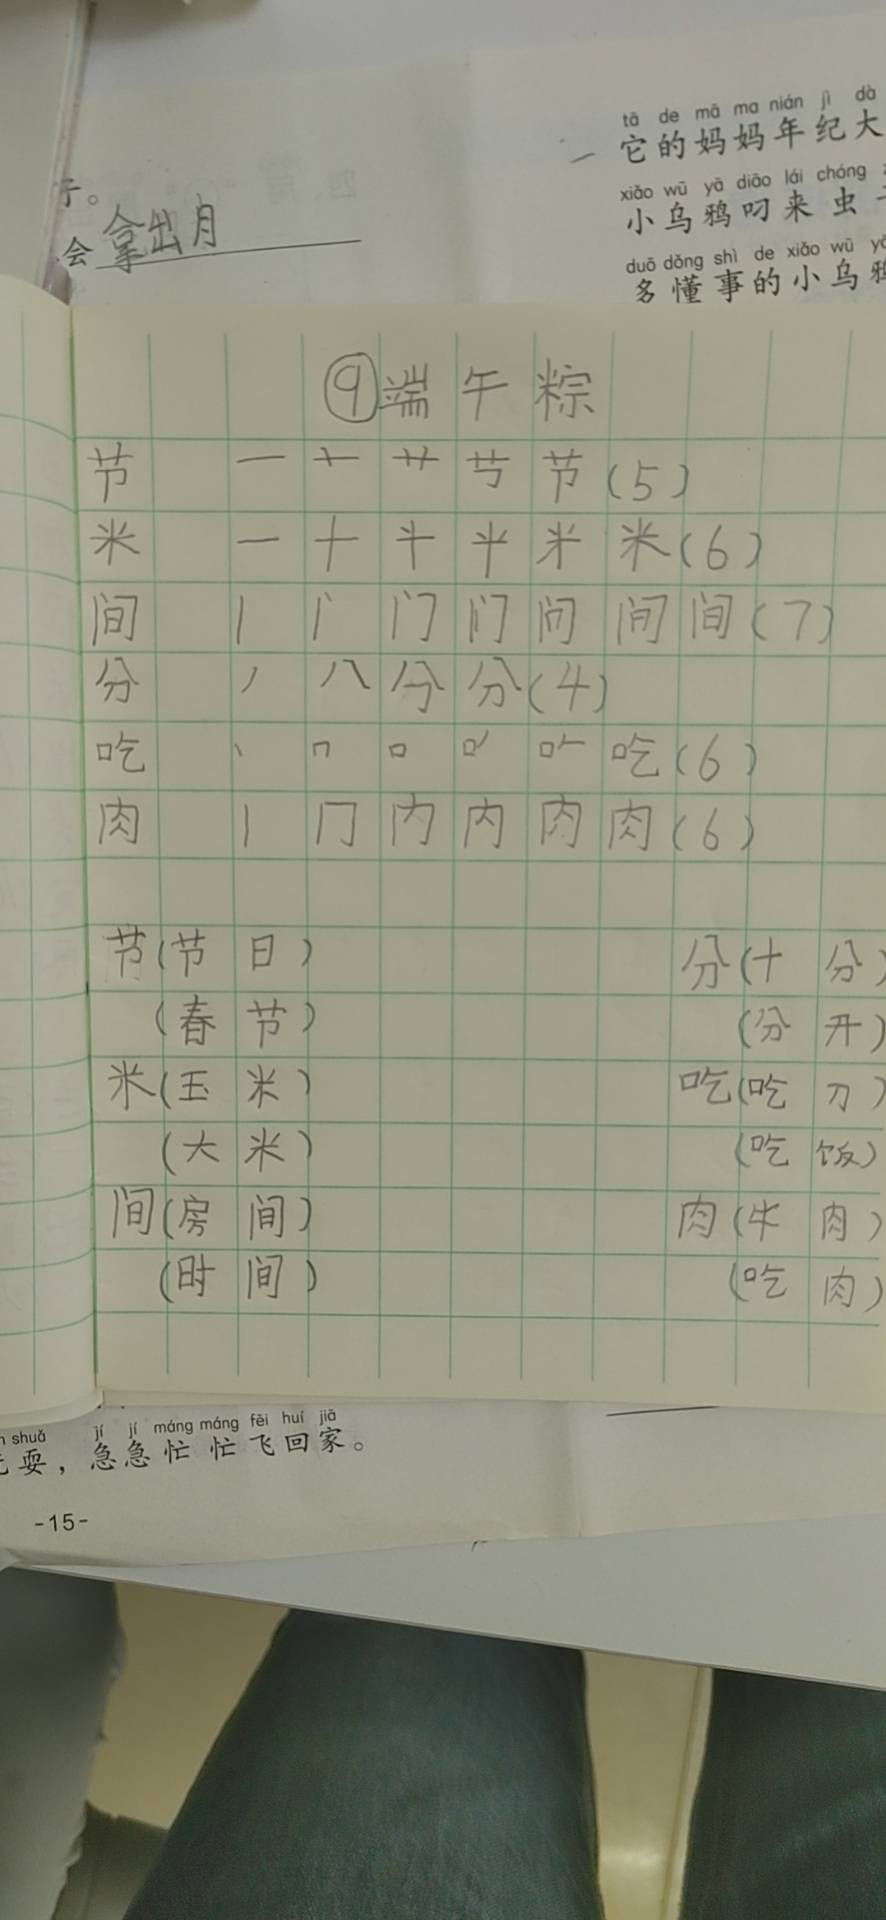 tā de mā ma nián jì dà
它的妈妈年纪大
xiǎo wū yā diāo lái chóng
小乌鸦叼来虫
duō dǒng shì de xiǎo wū yā
多懂事的小乌鸦
子。
会拿出月
⑨端午粽
节 一 十 艹 节 (5)
米 一 十 米 (6)
间 丨 门 问 间 间 (7)
分 丿 八 分 分 (4)
吃 丶 口 吃 (6)
肉 丨 冂 内 内 肉 肉 (6)
节(节日) 分(十分)
(春节) (分开)
米(玉米) 吃(吃刀)
(大米) (吃饭)
间(房间) 肉(牛肉)
(时间) (吃肉)
shuǎ jí jí máng máng fēi huí jiā
耍，急急忙忙飞回家。
-15-